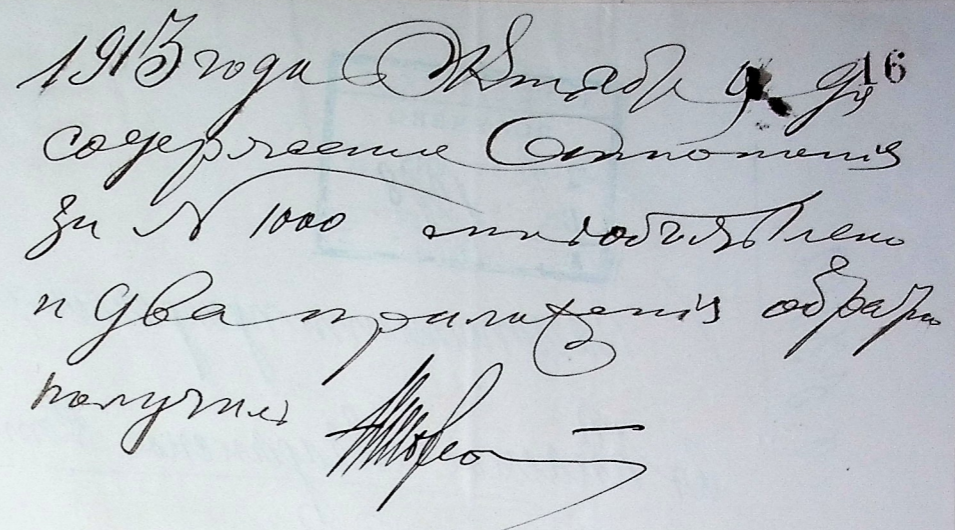 1913 года Октября 9 дня 16
содержание Отношенія
за № 1000 мнѣ объявлено
и два приложенія обратно
получилъ